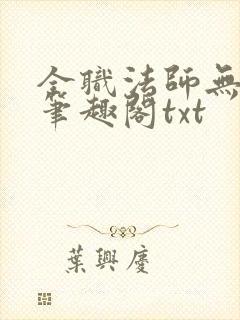 全職法師無
筆趣閣txt
葉興慶